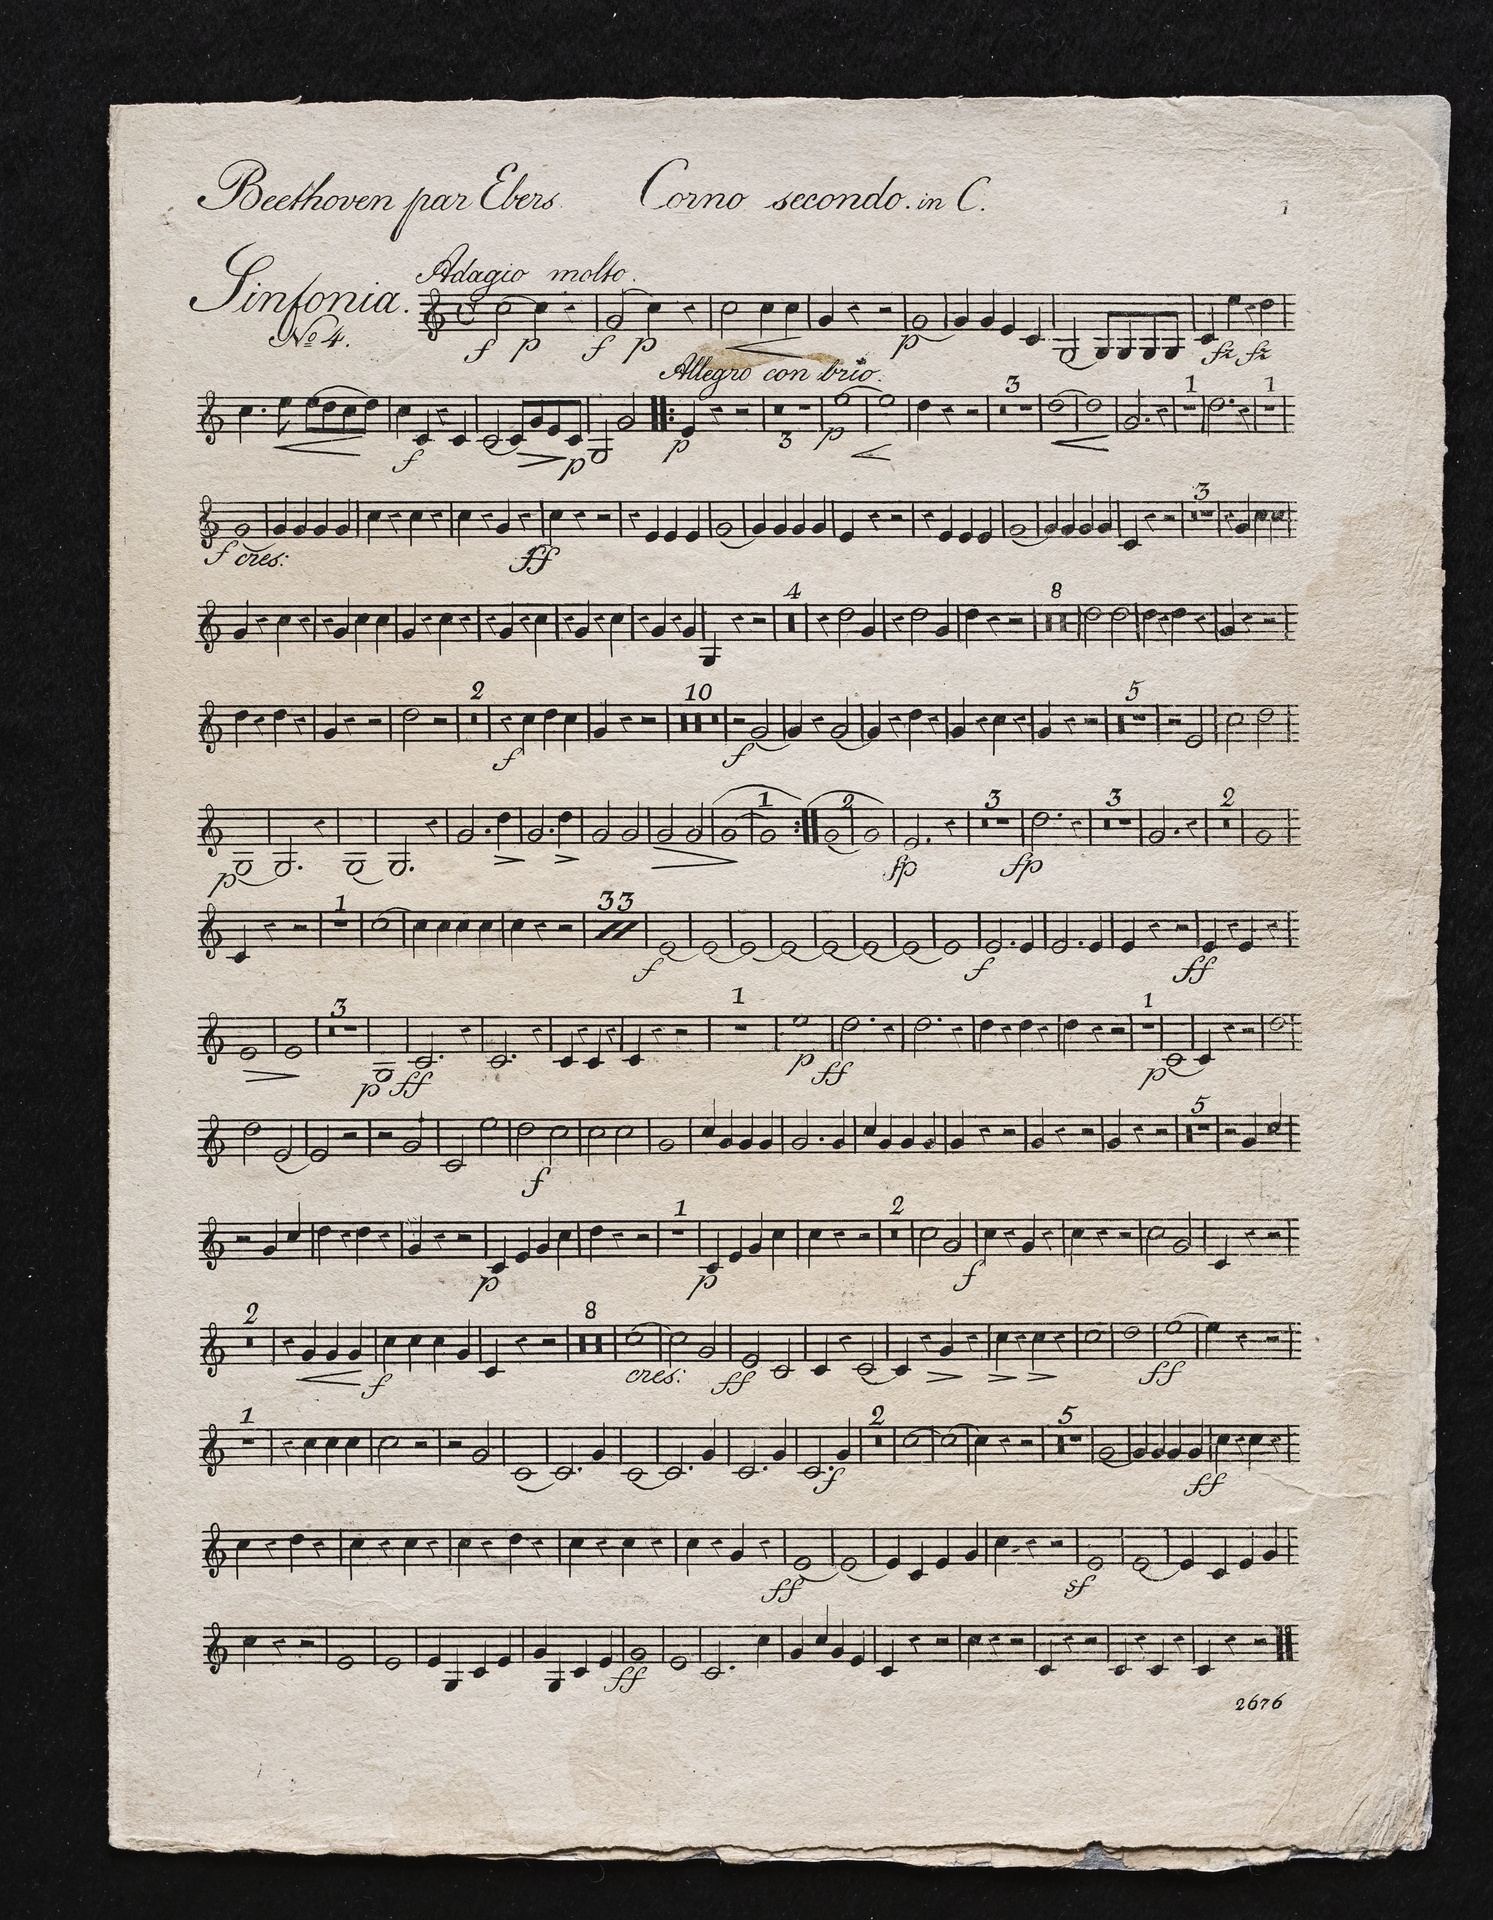 Beethoven par Ebers. Corno secondo. in C. 1
Adagio molto.
Sinfonia.
No 4.
f p f p p fz fz
Allegro con brio.
3 1 1
f p p 3 p
3
f cres: ff
4 8
2 10 5
f f
1 2 3 3 2
p fp fp
1 33
f f ff
3 1 1
p ff p ff p
5
f
1 2
p p f
2 8
f cres: ff ff
1 2 5
f ff
ff sf
ff
2676